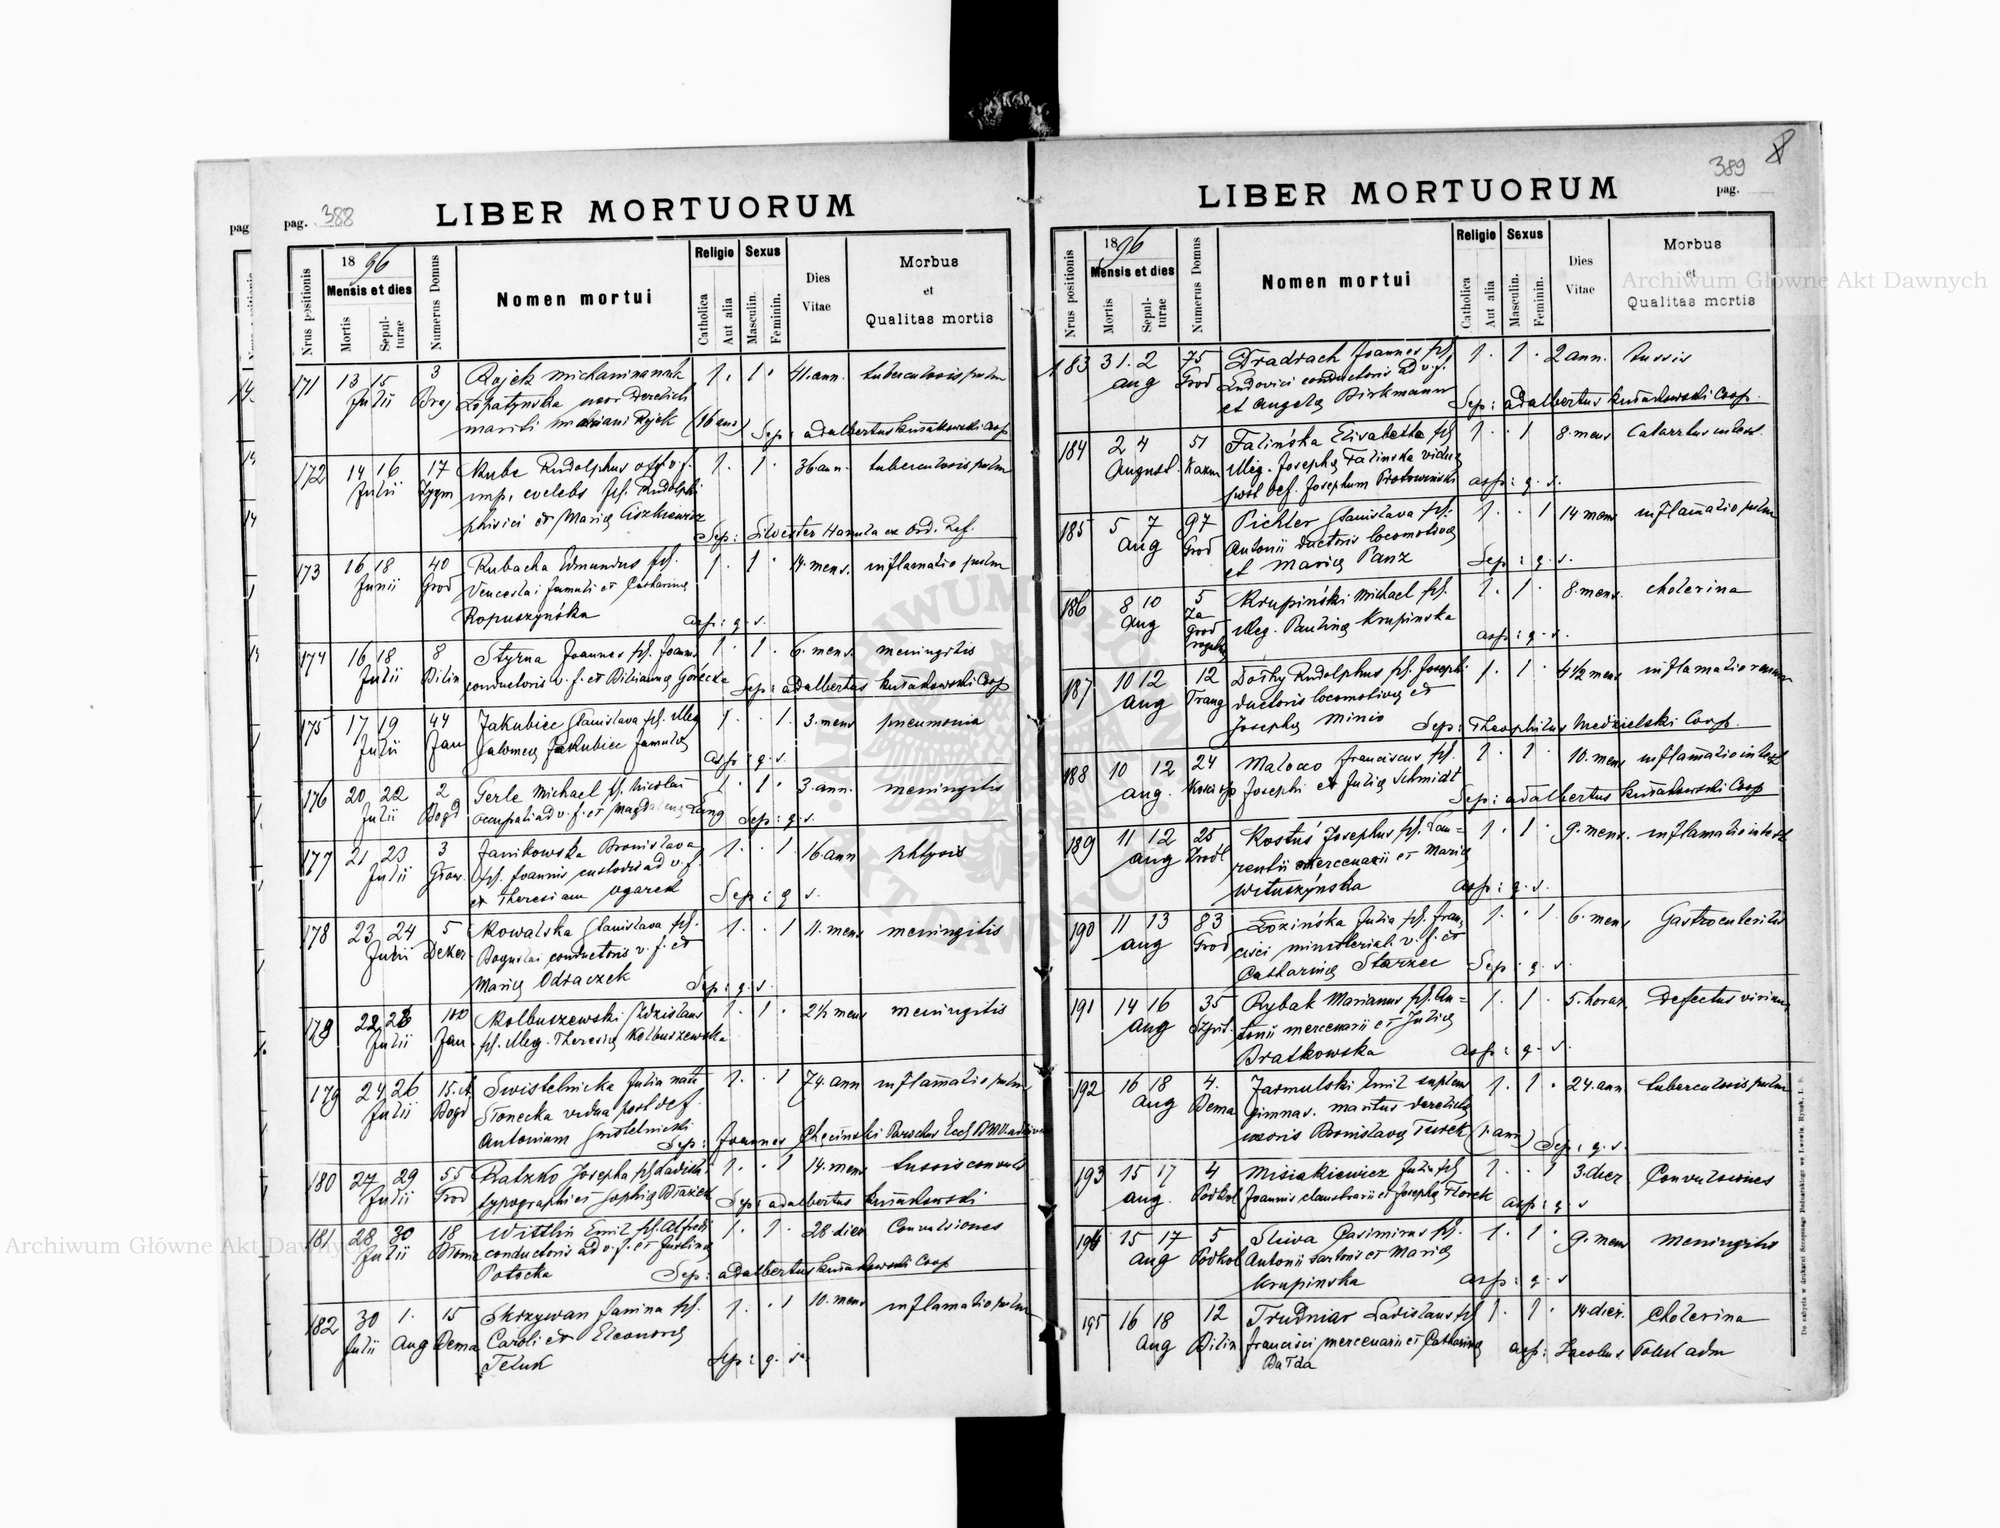 pag. 388
LIBER MORTUORUM
Nrus positionis
1896
Mensis et dies
Mortis
Sepulturae
Numerus Domus
Nomen mortui
Religio
Catholica
Aut alia
Sexus
Masculin.
Feminin.
Dies Vitae
Morbus et Qualitas mortis
171 13 15 3 Rojek 1. 1. 41. ann. tuberculosis pulm
Julii Łopatyńska uxor derelicti
mariti Rojek Sep: Adalbertus Kuśiakowski Coop
172 14 16 17 Kube Rudolphus 1. 1. 36 ann. tuberculosis pulm
Julii Zygm imp. coelebs fil. Rudolphi
phisici et Mariae Ciszkiewicz
Sep: Silvester Hannula ex Ord. Ref.
173 16 18 40 Kubacka Edmundus fil. 1. 1. 14. mens. inflamatio pulm
Junii Grod Venceslai famuli et Catharina
Ropuszyńska asp: q. s.
174 16 18 8 Styrna Joannes fil. Joann. 1. 1. 6. mens. meningitis
Julii Bilin conductoris v. f. et Górecka Sep: Adalbertus Kuśiakowski Coop
175 17 19 44 Jakubiec Stanislava fil. illeg 1. 1. 3. mens pneumonia
Julii Jan Salomea Jakubiec famula asp: q. s.
176 20 22 2 Gerle Michael fil. Nicolai 1. 1. 3. ann. meningitis
Julii Bogd ocupati ad v. f. et Magdalena Lang Sep: q. s.
177 21 23 3 Janikowska Bronislava 1. 1 16. ann phtysis
Julii Głow. fil. Joannis custodis ad v. f.
et Theresiam Ogarek Sep: q. s.
178 23 24 5 Kowalska Stanislava fil. 1. 1 11. mens meningitis
Julii Deker Boguslai conductoris v. f. et
Maria Odraczek Sep: q. s.
178 22 100 Kolbuszewski Zdzislaus 1. 1. 2½ mens meningitis
Julii Jan fil. illeg. Theresia Kolbuszewska
179 24 26 15. Swistelnicka Julia nata 1. 1 74. ann inflamatio pulm
Julii Bogd Słonecka vidua post def.
Antonium Swistelnicki Sep: Joannes Chęciński Parochus Eccl
180 27 29 55 Ratzko Josepha fil. Ladislai 1. 1 14. mens tussis convuls
Julii Grod typographi et Sophia Brażek Sep: Adalbertus Kuśiakowski
181 28 30 18 Wittlin Emil fil. Alfredi 1. 1. 28 dier Convulsiones
Julii Błonie conductoris ad v. f. et Justina
Potocka Sep: Adalbertus Kuśiakowski Coop
182 30 1. 15 Skrzywan Janina fil. 1. 1 10. mens inflamatio pulm
Julii Aug Bema Caroli et Eleonora
Teluk Sep: q. s.
389
pag.
LIBER MORTUORUM
Nrus positionis
1896
Mensis et dies
Mortis
Sepulturae
Numerus Domus
Nomen mortui
Religio
Catholica
Aut alia
Sexus
Masculin.
Feminin.
Dies Vitae
Morbus et Qualitas mortis
183 31. 2 75 Dradrach Joannes fil. 1. 1. 2 ann. tussis
Aug Grod Ludovici conductoris ad v. f.
et Angela Birkmann Sep: Adalbertus Kuśiakowski Coop.
184 2 4 51 Falińska Elisabetha fil 1. 1 8. mens Catarrhus intest.
August. Kazm illeg. Josepha Falinska vidua
post def. Josephum Piotrowiński asp: q. s.
185 5 7 97 Pichler Stanislava fil. 1. 1 14 mens inflamatio pulm
Aug Grod Antonii ductoris locomotiva
et Maria Panz Sep: q. s.
186 8 10 5 Krupiński Michael fil. 1. 1. 8. mens. cholerina
Aug Za Grod illeg. Paulina Krupinska
asp: q. s.
187 10 12 12 Dothy Rudolphus fil. Josephi 1. 1 4½ mens inflamatio renum
Aug Traug ductoris locomotiva et
Josepha Minio Sep: Theophilus Niedzielski Coop.
188 10 12 24 Franciscus fil. 1. 1 10. mens inflamatio intest
Aug. Josephi et Julia Schmidt
Sep: Adalbertus Kuśiakowski Coop
189 11 12 25 Kostuś Josephus fil. Lau=
Aug rentii mercenarii et Maria 1. 1. 9. mens. inflamatio intest
Wituszyńska asp: q. s.
190 11 13 83 Łozińska Julia fil. Fran= 1. 1. 6. mens Gastroenteritis
Aug Grod cisci ministerial. v. f. et
Catharina Starzec Sep: q. s.
191 14 16 35 Rybak Marianus fil. An= 1. 1. 5. horar. Defectus virium
Aug Szpit. tonii mercenarii et Julia
Bratkowska asp: q. s.
192 16 18 4. Jarmulski Emil suplens 1. 1. 24. ann tuberculosis pulm
Aug Bema gimnas. maritus derelicta
uxoris Bronislava Turek (1. ann) Sep: q. s.
193 15 17 4 Misiakiewicz Julia fil 1. 1 3. dier Convulsiones
Aug. Podkol Joannis claustrarii et Josepha Florek asp: q. s
194 15 17 5 Sliwa Casimirus fil. 1. 1. 9. mens Meningitis
Aug Podkol Antonii sartoris et Maria
Krupinska asp: q. s
195 16 18 12 Trudniar Ladislaus fil 1. 1. 14. dier. Cholerina
Aug Bilin Francisci mercenarii et Catharina
Bałda asp: Jacobus
Archiwum Główne Akt Dawnych
Archiwum Główne Akt Dawnych